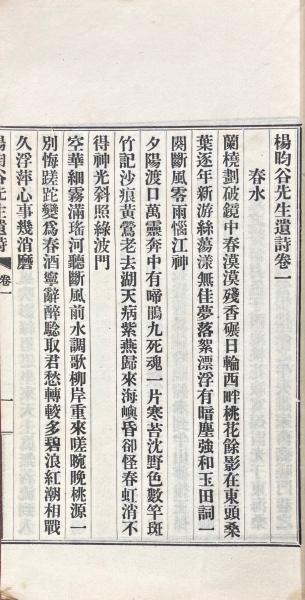 楊昀谷先生遺詩卷一
春水
蘭橈劃破鏡中春漠漠殘香碾日輪西畔桃花餘影在東頭桑
葉逐年新游絲蕩漾無佳夢落絮漂浮有暗塵強和玉田詞一
闋斷風零雨惱江神
夕陽渡口萬靈奔中有啼鵑九死魂一片寒苔沈野色數竿斑
竹記沙痕黃鶯老去湖天病紫燕歸來海嶼昏卻怪春虹消不
得神光斜照綠波門
空華細霧滿瑤河聽斷風前水調歌柳岸重來嗟晼晚桃源一
別悔蹉跎變為春酒寧辭醉騐取君愁轉較多碧浪紅潮相戰
久浮萍心事幾消磨
楊昀谷先生遺詩 卷一 一